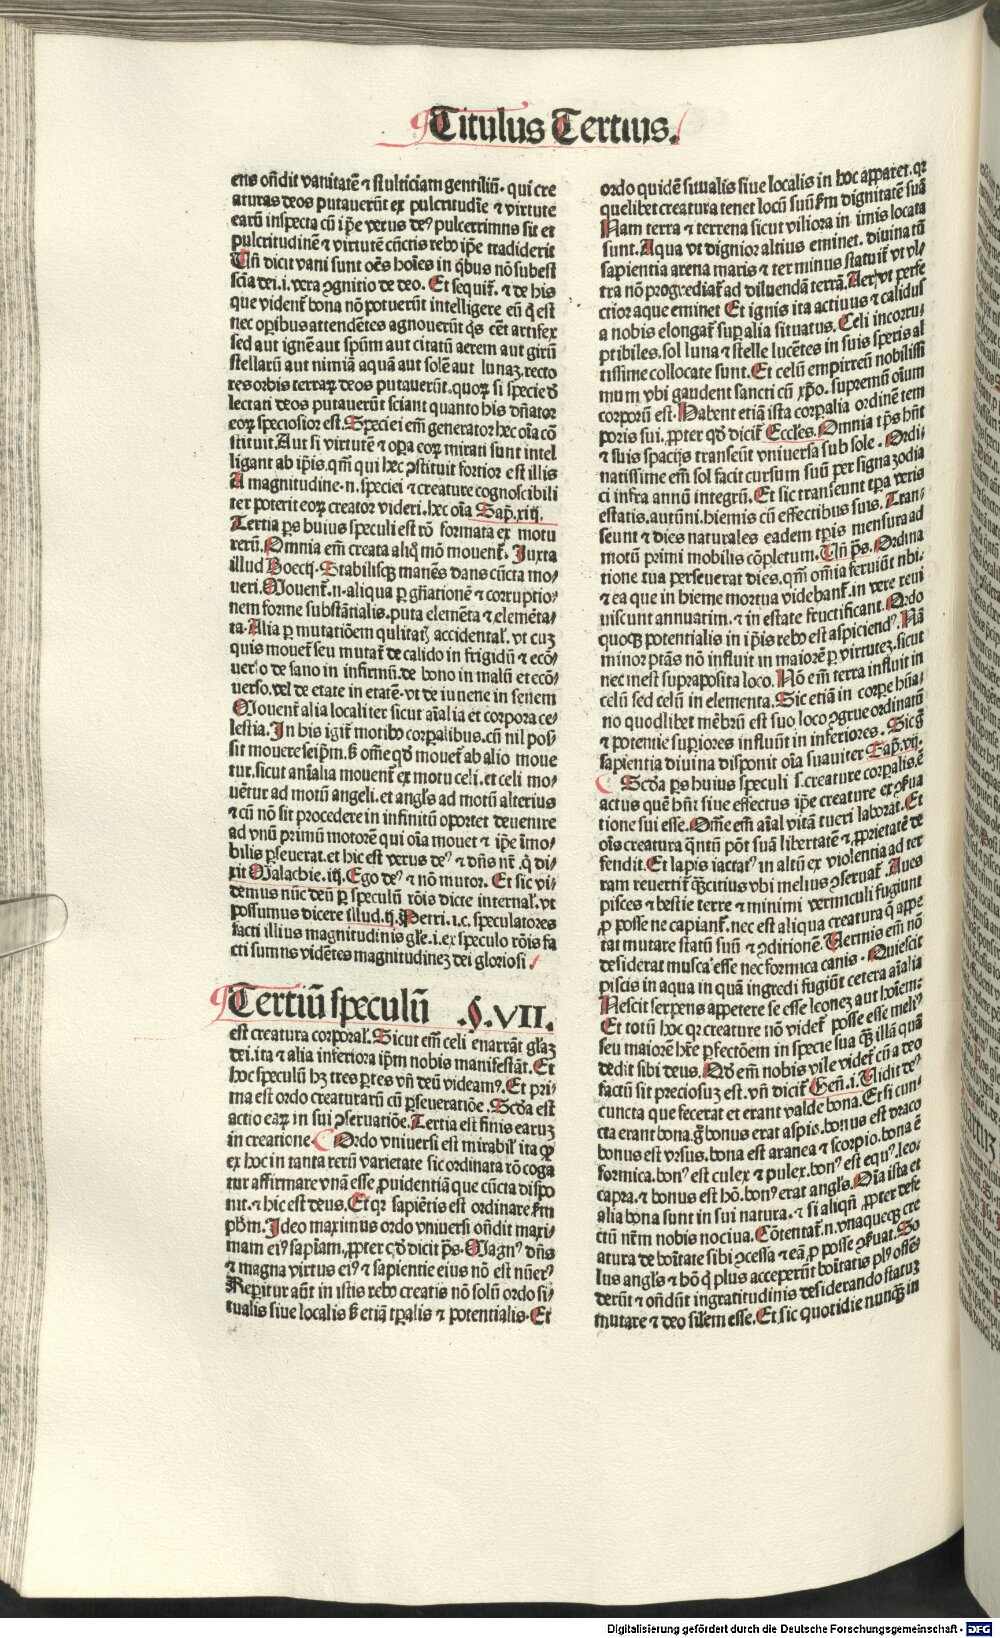 Titulus Tertius.
ens oñdit vanitatē ⁊ stulticiam gentiliū. qui cre
aturas deos putauerūt ex pulcritudīe ⁊ virtute
earū inspecta cū ip̄e verus deꝰ pulcerrimus sit et
pulcritudinē ⁊ virtutē cūctis rebꝰ ip̄e tradiderit
Uñ dicit vani sunt oēs hoīes in q̇bus nō subest
scīa dei. i. vera ꝯgnitio de deo. Et sequit᷑. ⁊ de his
que vident᷑ bona nō potuerūt intelligere eū q̇ est
nec oꝑibus attendētes agnouerūt q̇s eēt artifex
sed aut ignē aut spūm aut citatū aerem aut girū
stellarū aut nimiā aquā aut solē aut lunaꝫ. recto
res orbis terraꝝ deos putauerūt. quoꝝ si specie d̄
lectati deos putauerūt sciant quanto his dñator
eoꝝ speciosior est. Speciei em̄ generator hec oīa cō
stituit. Aut si virtutē ⁊ oꝑa eoꝝ mirati sunt intel
ligant ab ip̄is. qm̄ qui hec ꝯstituit fortior est illis
A magnitudine. n. speciei ⁊ creature cognoscibili
ter poterit eoꝝ creator videri. hec oīa Sap̄. xiij.
Tertia ꝑs huius speculi est rō formata ex motu
rerū. Omnia em̄ creata aliq̇ mō mouent᷑. Iuxta
illud Boecij. Stabilisqꝫ manēs dans cūcta mo/
ueri. Mouent᷑. n. aliqua ꝑ gn̄ationē ⁊ corruptio/
nem forme substātialis. puta elemēta ⁊ elemēta/
ta. Alia ꝑ mutatiōem q̄litatꝭ accidental᷑. vt cuꝫ
quis mouet᷑ seu mutat᷑ de calido in frigidū ⁊ ecō/
uerso de sano in infirmū. de bono in malū et ecō/
uerso. vel de etate in etatē. vt de iuuene in senem
Mouent᷑ alia localiter sicut aīalia et corpora ce/
lestia. In his igit᷑ motibꝰ corꝑalibus. cū nil pos/
sit mouere seip̄m. sꝫ om̄e qd̓ mouet᷑ ab alio moue
tur. sicut aīalia mouent᷑ ex motu celi. et celi mo/
uētur ad motū angeli. et angls̄ ad motū alterius
⁊ cū nō sit procedere in infinitū oportet deuenire
ad vnū primū motorē qui oīa mouet ⁊ ip̄e īmo/
bilis ꝑseuerat. et hic est verus deꝰ ⁊ dñs nr̄. q̇ di/
xit Malachie. iij. Ego deꝰ ⁊ nō mutor. Et sic vi/
demus nūc deū ꝑ speculū rōis dicte internal᷑. vt
possumus dicere illud. ij. Petri. i. c. speculatores
facti illius magnitudinis gl̄e. i. ex speculo rōis fa
cti sumus vidētes magnitudineꝫ dei gloriosi
Tertiū speculū .§. VII.
est creatura corporal᷑. Sicut em̄ celi enarrāt gl̄aꝫ
dei. ita ⁊ alia inferiora ip̄m nobis manifestāt. Et
hoc speculū hꝫ tres ꝑtes vñ deū videamꝰ. Et pri/
ma est ordo creaturarū cū ꝑseueratiōe. Scd̓a est
actio eaꝝ in sui ꝯseruatiōe. Tertia est finis earuꝫ
in creatione. Ordo vniuersi est mirabil᷑ ita qꝫ
ex hoc in tanta rerū varietate sic ordinata rō coga
tur affirmare vnā esse ꝓuidentiā que cūcta dispo
nit. ⁊ hic est deus. Et qr sapiētis est ordinare scd̓m
pħm. Ideo maximus ordo vniuersi oñdit maxi/
mam eiꝰ sap̄iam, ꝓpter qd̓ dicit p̄s. Magnꝰ dñs
⁊ magna virtus eiꝰ ⁊ sapientie eius nō est nūerꝰ
Reꝑitur aūt in istis rebꝰ creatis nō solū ordo si/
tualis siue localis sꝫ etiā tꝑalis ⁊ potentialis. Et
ordo quidē situalis siue localis in hoc apparet. qr
quelibet creatura tenet locū suū scd̓m dignitatē suā
Nam terra ⁊ terrena sicut viliora in imis locata
sunt. Aqua vt dignior altius eminet. diuina tn̄
sapientia arena maris ⁊ terminus statuit᷑ vt vl/
tra nō progrediat᷑ ad diluendā terrā. Aer vt perfe
ctior aque eminet Et ignis ita actiuus ⁊ calidus
a nobis elongat᷑ suꝑ alia situatus. Celi incorru/
ptibiles. sol luna ⁊ stelle lucētes in suis speris al
tissime collocate sunt. Et celū empirreū nobilissi
mum vbi gaudent sancti cū xp̄o. supremū oīum
corporū est. Habent etiā ista corꝑalia ordinē tem
poris sui. ꝓpter qd̓ dicit᷑ Eccles. Omnia tp̄s hñt
⁊ suis spacijs transeūt vniuersa sub sole. Ordi/
natissime em̄ sol facit cursum suū per signa zodia
ci infra annū integrū. Et sic transeunt tꝑa veris
estatis. autūni. hiemis cū effectibus suis. Tran/
seunt ⁊ dies naturales eadem tꝑis mensura ad
motū primi mobilis cōpletum. Uñ p̄s. Ordina
tione tua perseuerat dies. qm̄ om̄ia seruiūt tibi.
⁊ ea que in hieme mortua videbant᷑. in vere reui
uiscunt annuatim. ⁊ in estate fructificant. Ordo
quoqꝫ potentialis in ip̄is rebꝰ est aspiciendꝰ. Nā
minor ptās nō influit in maiorē ꝑ virtuteꝫ. sicut
nec inest supraposita loco. Nō em̄ terra influit in
celū sed celū in elementa. Sic etiā in corꝑe hūa/
no quodlibet mēbrū est suo loco ꝯgrue ordinatū
⁊ potentie suꝑiores influūt in inferiores. Sic g̊
sapientia diuina disponit oīa suauiter Sap̄. vij.
Scd̓a ꝑs huius speculi s. creature corꝑalis. ē
actus quē hn̄t siue effectus ip̄e creature ex ꝯserua
tione sui esse. Om̄e em̄ aīal vitā tueri laborat. Et
oīs creatura q̄ntū pōt suā libertatē ⁊ ꝓprietatē de
fendit. Et lapis iactatꝰ in altū ex violentia ad ter
ram reuertit᷑ qꝫcitius vbi melius ꝯseruat᷑. Aues
pisces ⁊ bestie terre ⁊ minimi vermiculi fugiunt
ꝓ posse ne capiant᷑. nec est aliqua creatura q̄ appe
tat mutare statū suū ⁊ ꝯditionē. Uermis em̄ nō
desiderat muscaꝰ esse nec formica canis. Quiescit
piscis in aqua in quā ingredi fugiūt cetera aīalia
Nescit serpens appetere se esse leoneꝫ aut hoīem.
Et totū hoc qr creature nō videt᷑ posse esse meliꝰ
seu maiorē hr̄e ꝑfectōem in specie sua qꝫ illā quā
dedit sibi deus. Qd̓ em̄ nobis vile videt᷑ cū a deo
factū sit preciosuꝫ est. vñ dicit᷑ Geñ. i. Uidit deꝰ
cuncta que fecerat et erant valde bona. Et si cun/
cta erant bona. g̊ bonus erat aspis. bonus est draco
bonus est vrsus. bona est aranea ⁊ scorpio. bona ē
formica. bonꝰ est culex ⁊ pulex. bonꝰ est equꝰ. leo.
capra. ⁊ bonus est hō. bonꝰ erat angls̄. Oīa ista et
alia bona sunt in sui natura. ⁊ si aliqñ ꝓpter defe
ctū nr̄m nobis nociua. Cōtentat᷑. n. vnaqueqꝫ cre
atura de boītate sibi ꝯcessa ⁊ eā ꝓ posse ꝯseruat. So
lus angls̄ ⁊ hō q̇ plus acceperūt boītatis plꝰ offē/
derūt ⁊ oñdūt ingratitudinis desiderando statuꝫ
mutare ⁊ deo sil̄em esse. Et sic quotidie nunqꝫ in
Digitalisierung gefördert durch die Deutsche Forschungsgemeinschaft - DFG